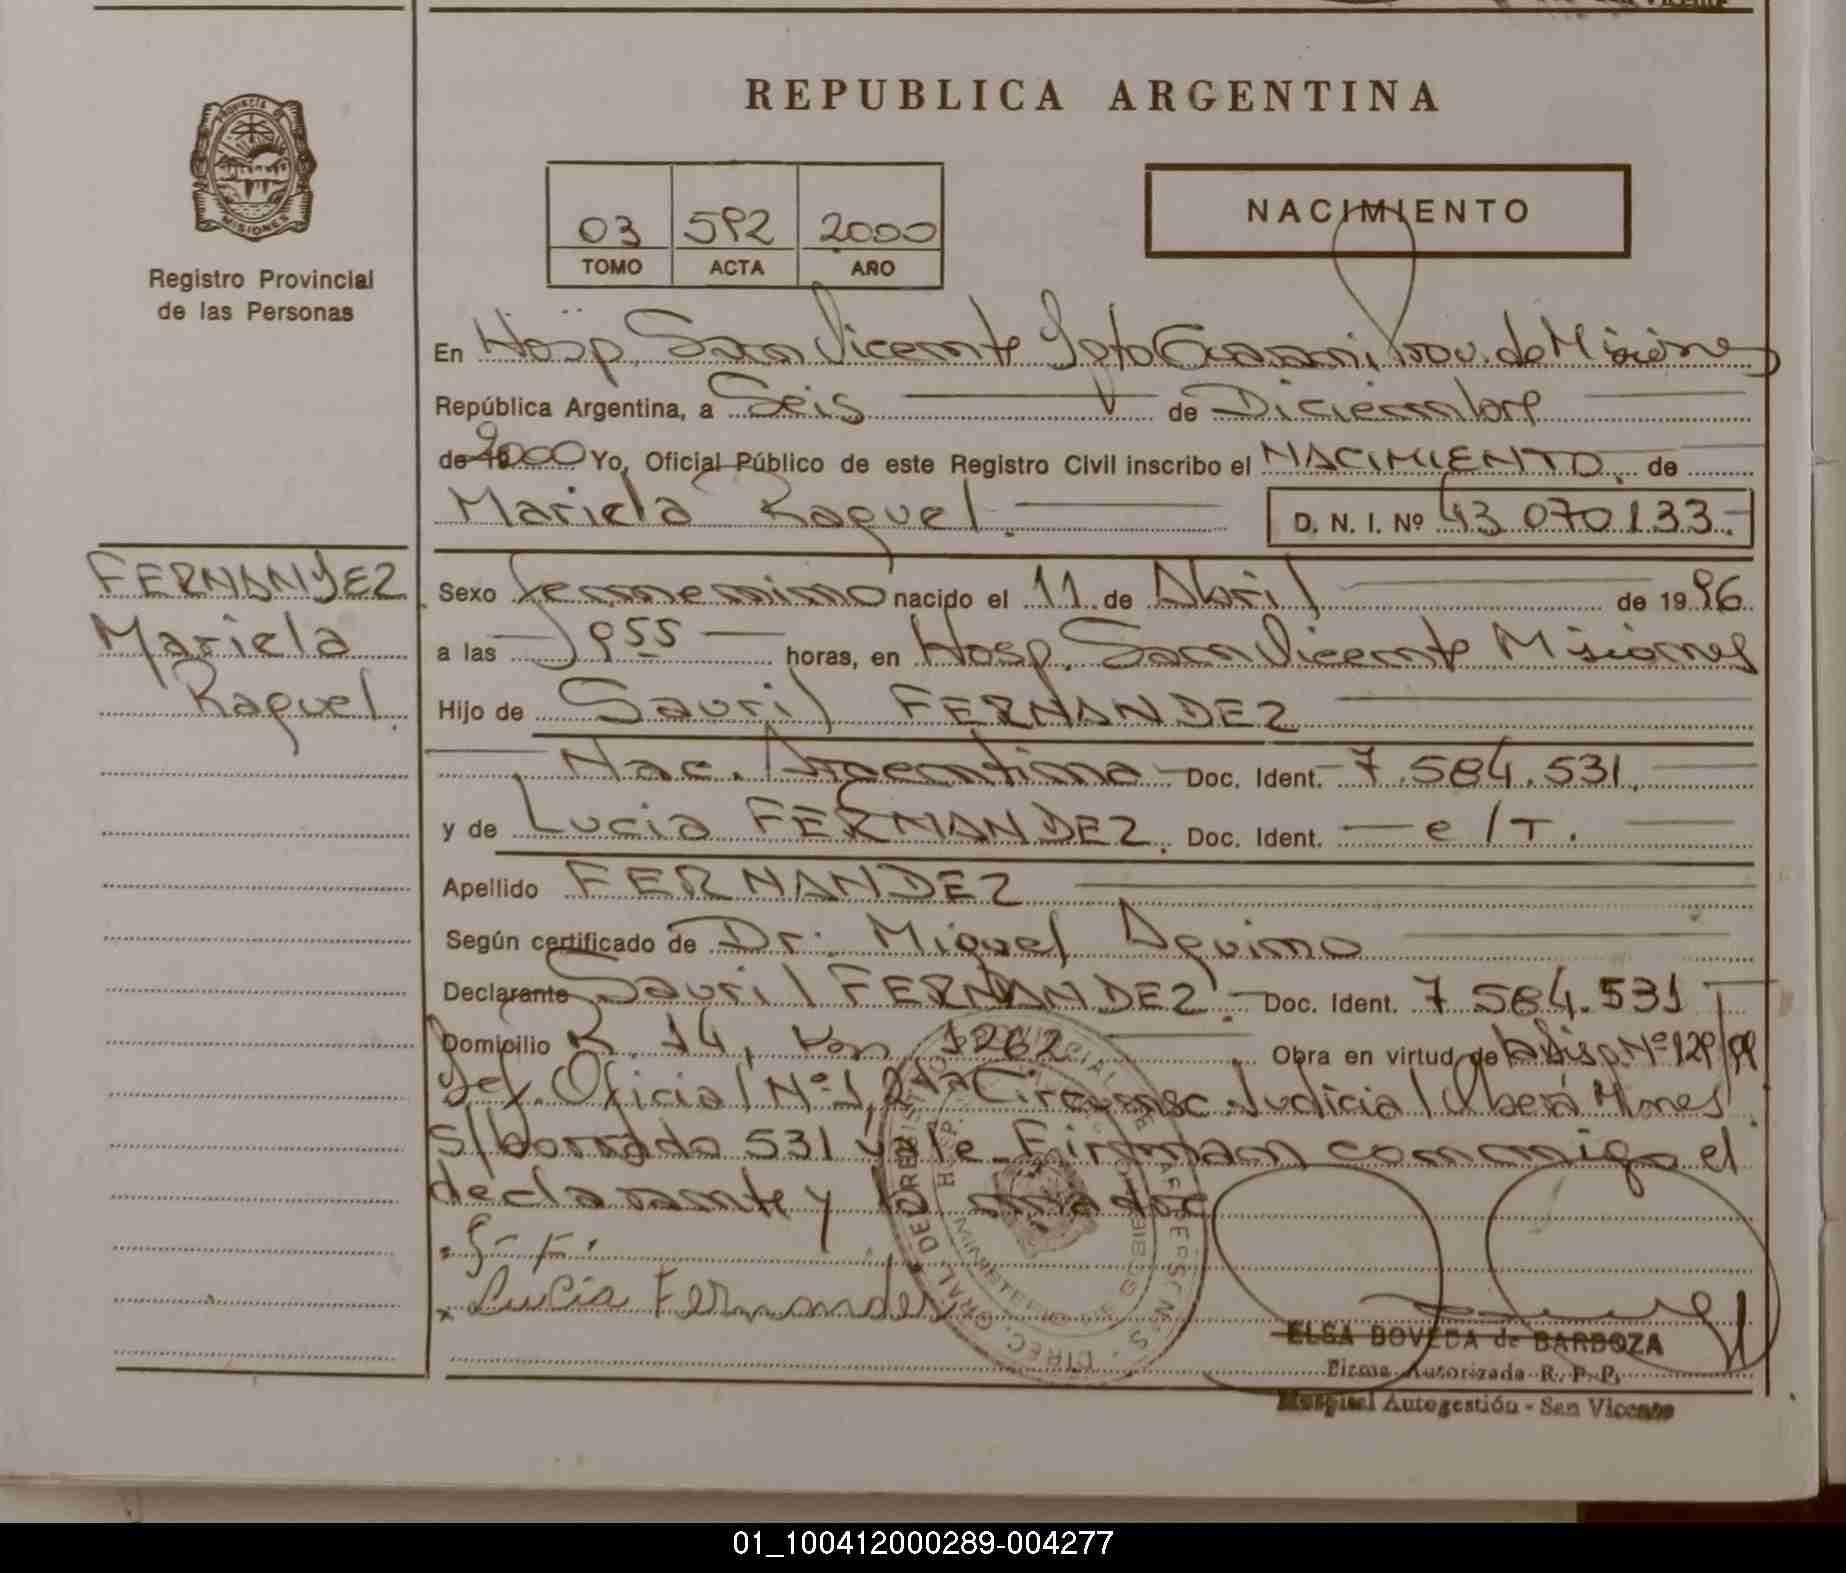 REPUBLICA ARGENTINA
PROVINCIA DE MISIONES
Registro Provincial
de las Personas
03 592 2000
TOMO ACTA AÑO
NACIMIENTO
En Hosp. San Vicente Dpto Guarani Prov. de Misiones
República Argentina, a Seis de Diciembre
de 2000 Yo, Oficial Público de este Registro Civil inscribo el NACIMIENTO de
Mariela Raquel D. N. I. Nº 43 070.133.-
FERNANDEZ
Mariela
Raquel
Sexo femenino nacido el 11 de Abril de 1996
a las 955 horas, en Hosp. San Vicente Misiones
Hijo de Sauril FERNANDEZ
Nac. Argentina Doc. Ident. 7.584.531.
y de Lucia FERNANDEZ. Doc. Ident. e/T.
Apellido FERNANDEZ
Según certificado de Dr. Miguel Aquino
Declarante Sauril FERNANDEZ.- Doc. Ident. 7.584.531
Domicilio R. 14, Km 1262 Obra en virtud de Disp. Nº 129/99
Def. Oficial Nº 1, 2da Circunsc. Judicial Oberá Mnes
s/borrado 531 vale Firman conmigo el
declarante y la madre
Lucia Fernandez
ELSA BOVEDA de BARBOZA
Firma Autorizada R. P. P.
Hospital Autogestión - San Vicente
01_100412000289-004277